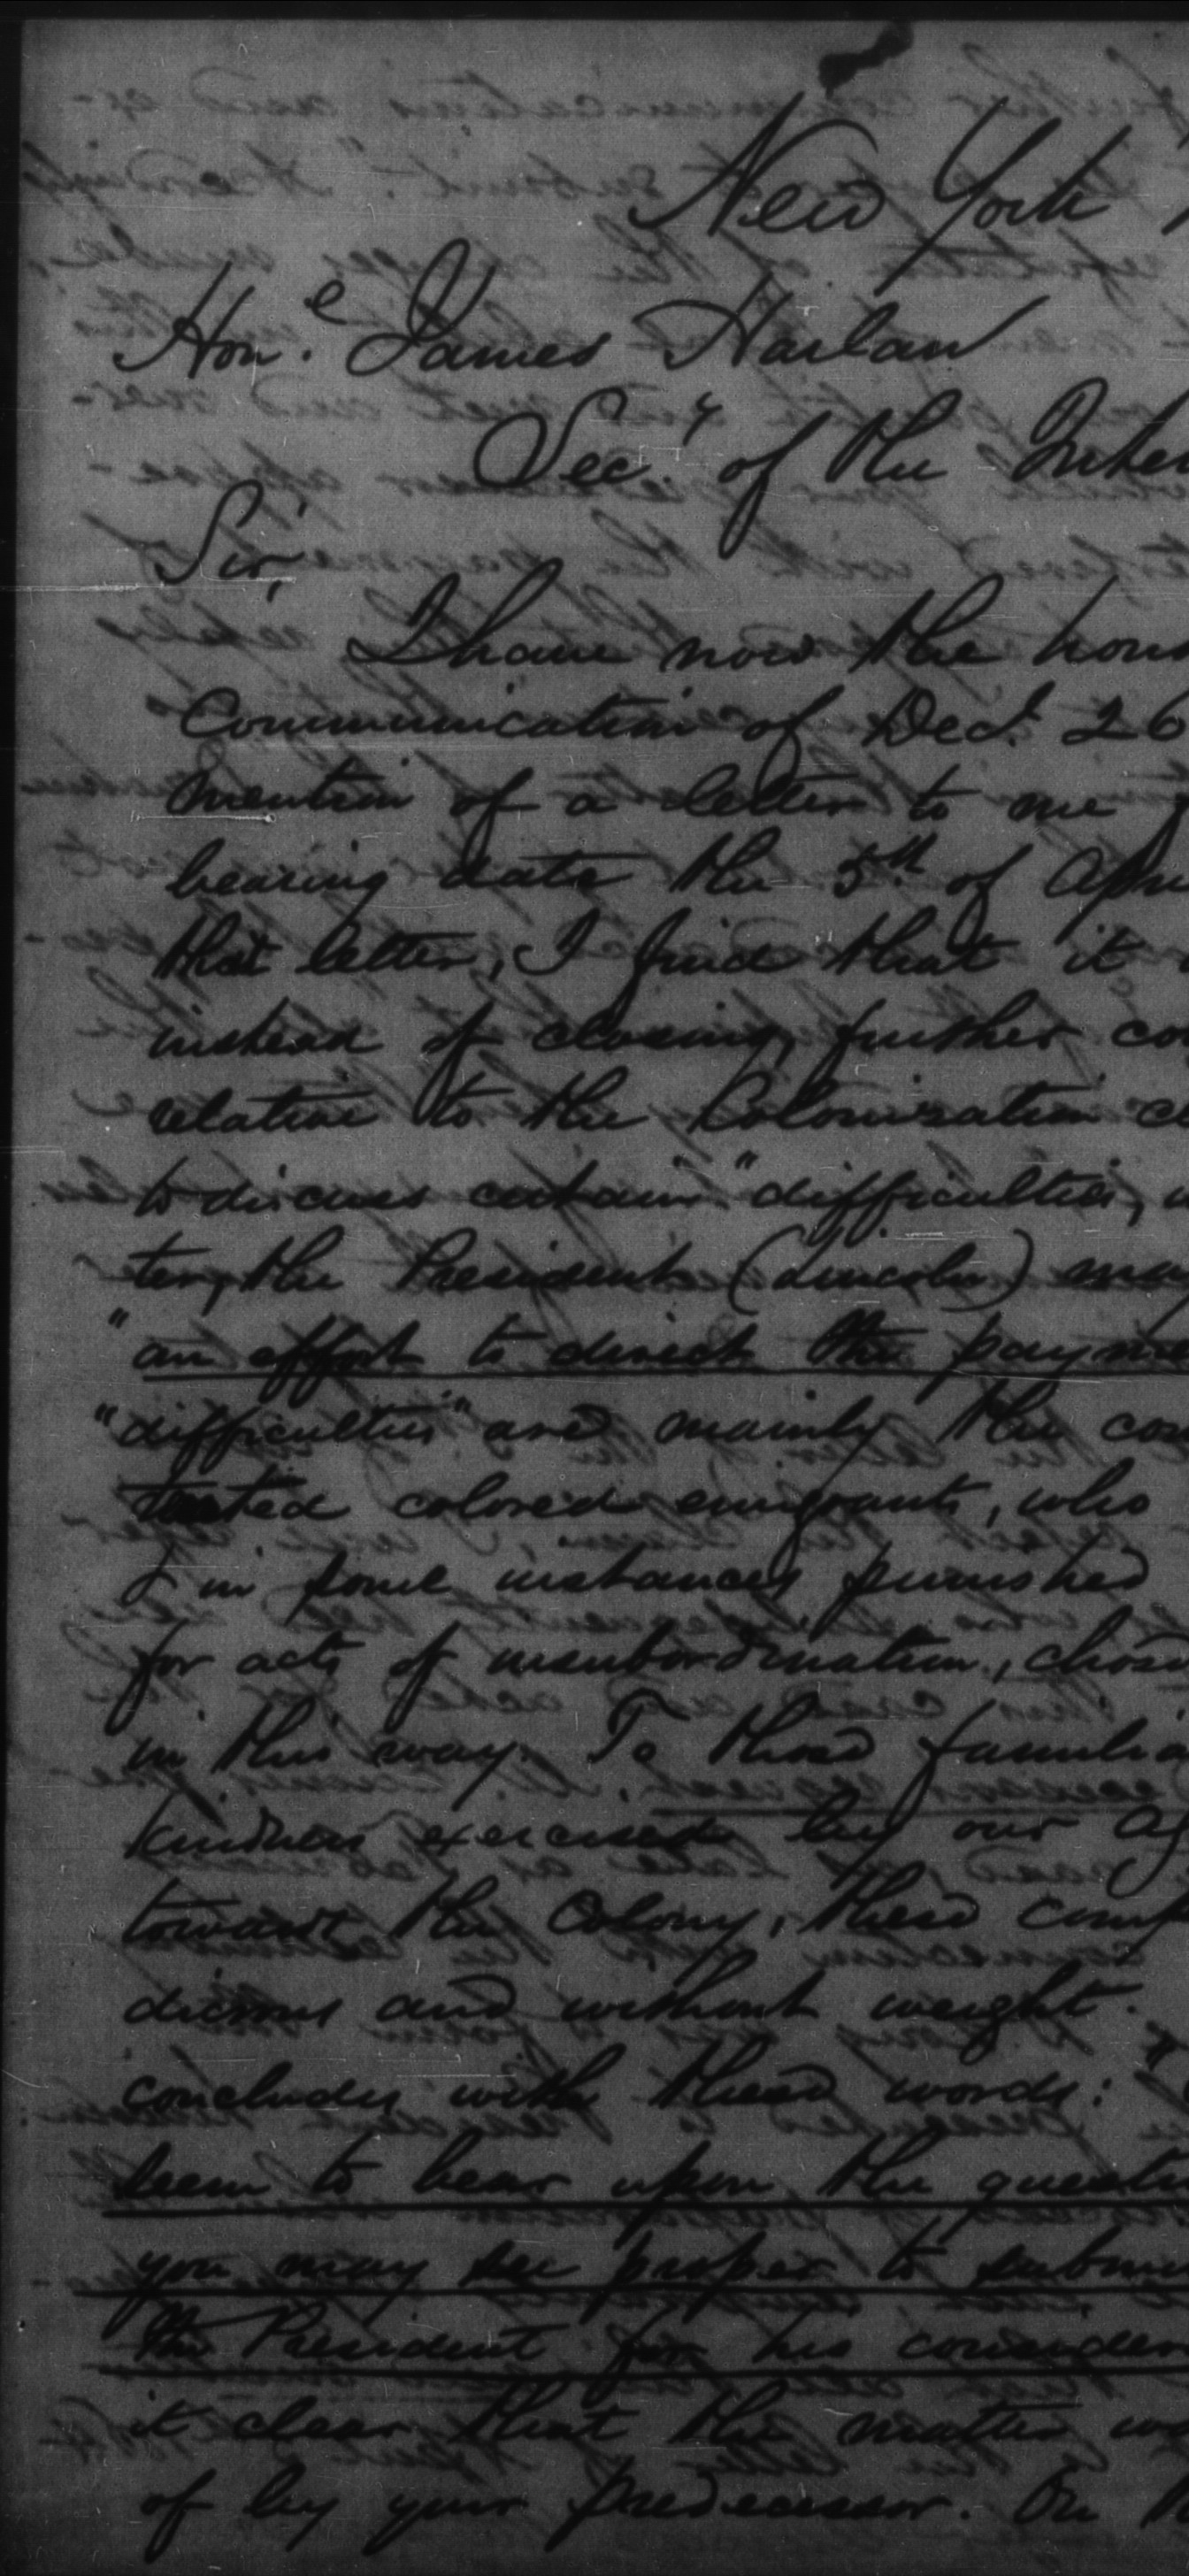 New York
Hon.e James Harlan
Sec.y of the Inter
Sir,
I have now the hono
Communication of Dec.r 26
mention of a letter to me
bearing date the 5th of Apri
that letter, I find that it
instead of closing, further co
relative to the Colonization c
to discuss certain "difficulties,
ter, the President (Lincoln) may
"an effort to direct the payme
"difficulties" are mainly the com
colored emigrants, who
& in some instances punished
for acts of insubordination, chose
in this way. To those familia
kindness exercised by our Ag
toward the Colony, these comp
and without weight.
concludes with these words: "
seem to bear upon the questi
you may see proper to submi
the President for his consider
it clear that the matter wa
of by your predecessor. On